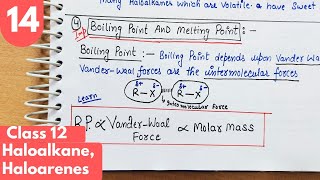 14
many Haloalkanes which are volatile. a have Sweet
④ Boiling Point And Melting Point :-
Imp
Boiling Point :- Boiling Point depends upon Vander-Waal
Vander-Waal forces are the intermolecular forces
Learn
δ+ δ- δ+ δ-
R-X R-X
Intermolecular Force
B.P. ∝ Vander-Waal Force ∝ Molar Mass
Class 12
Haloalkane,
Haloarenes